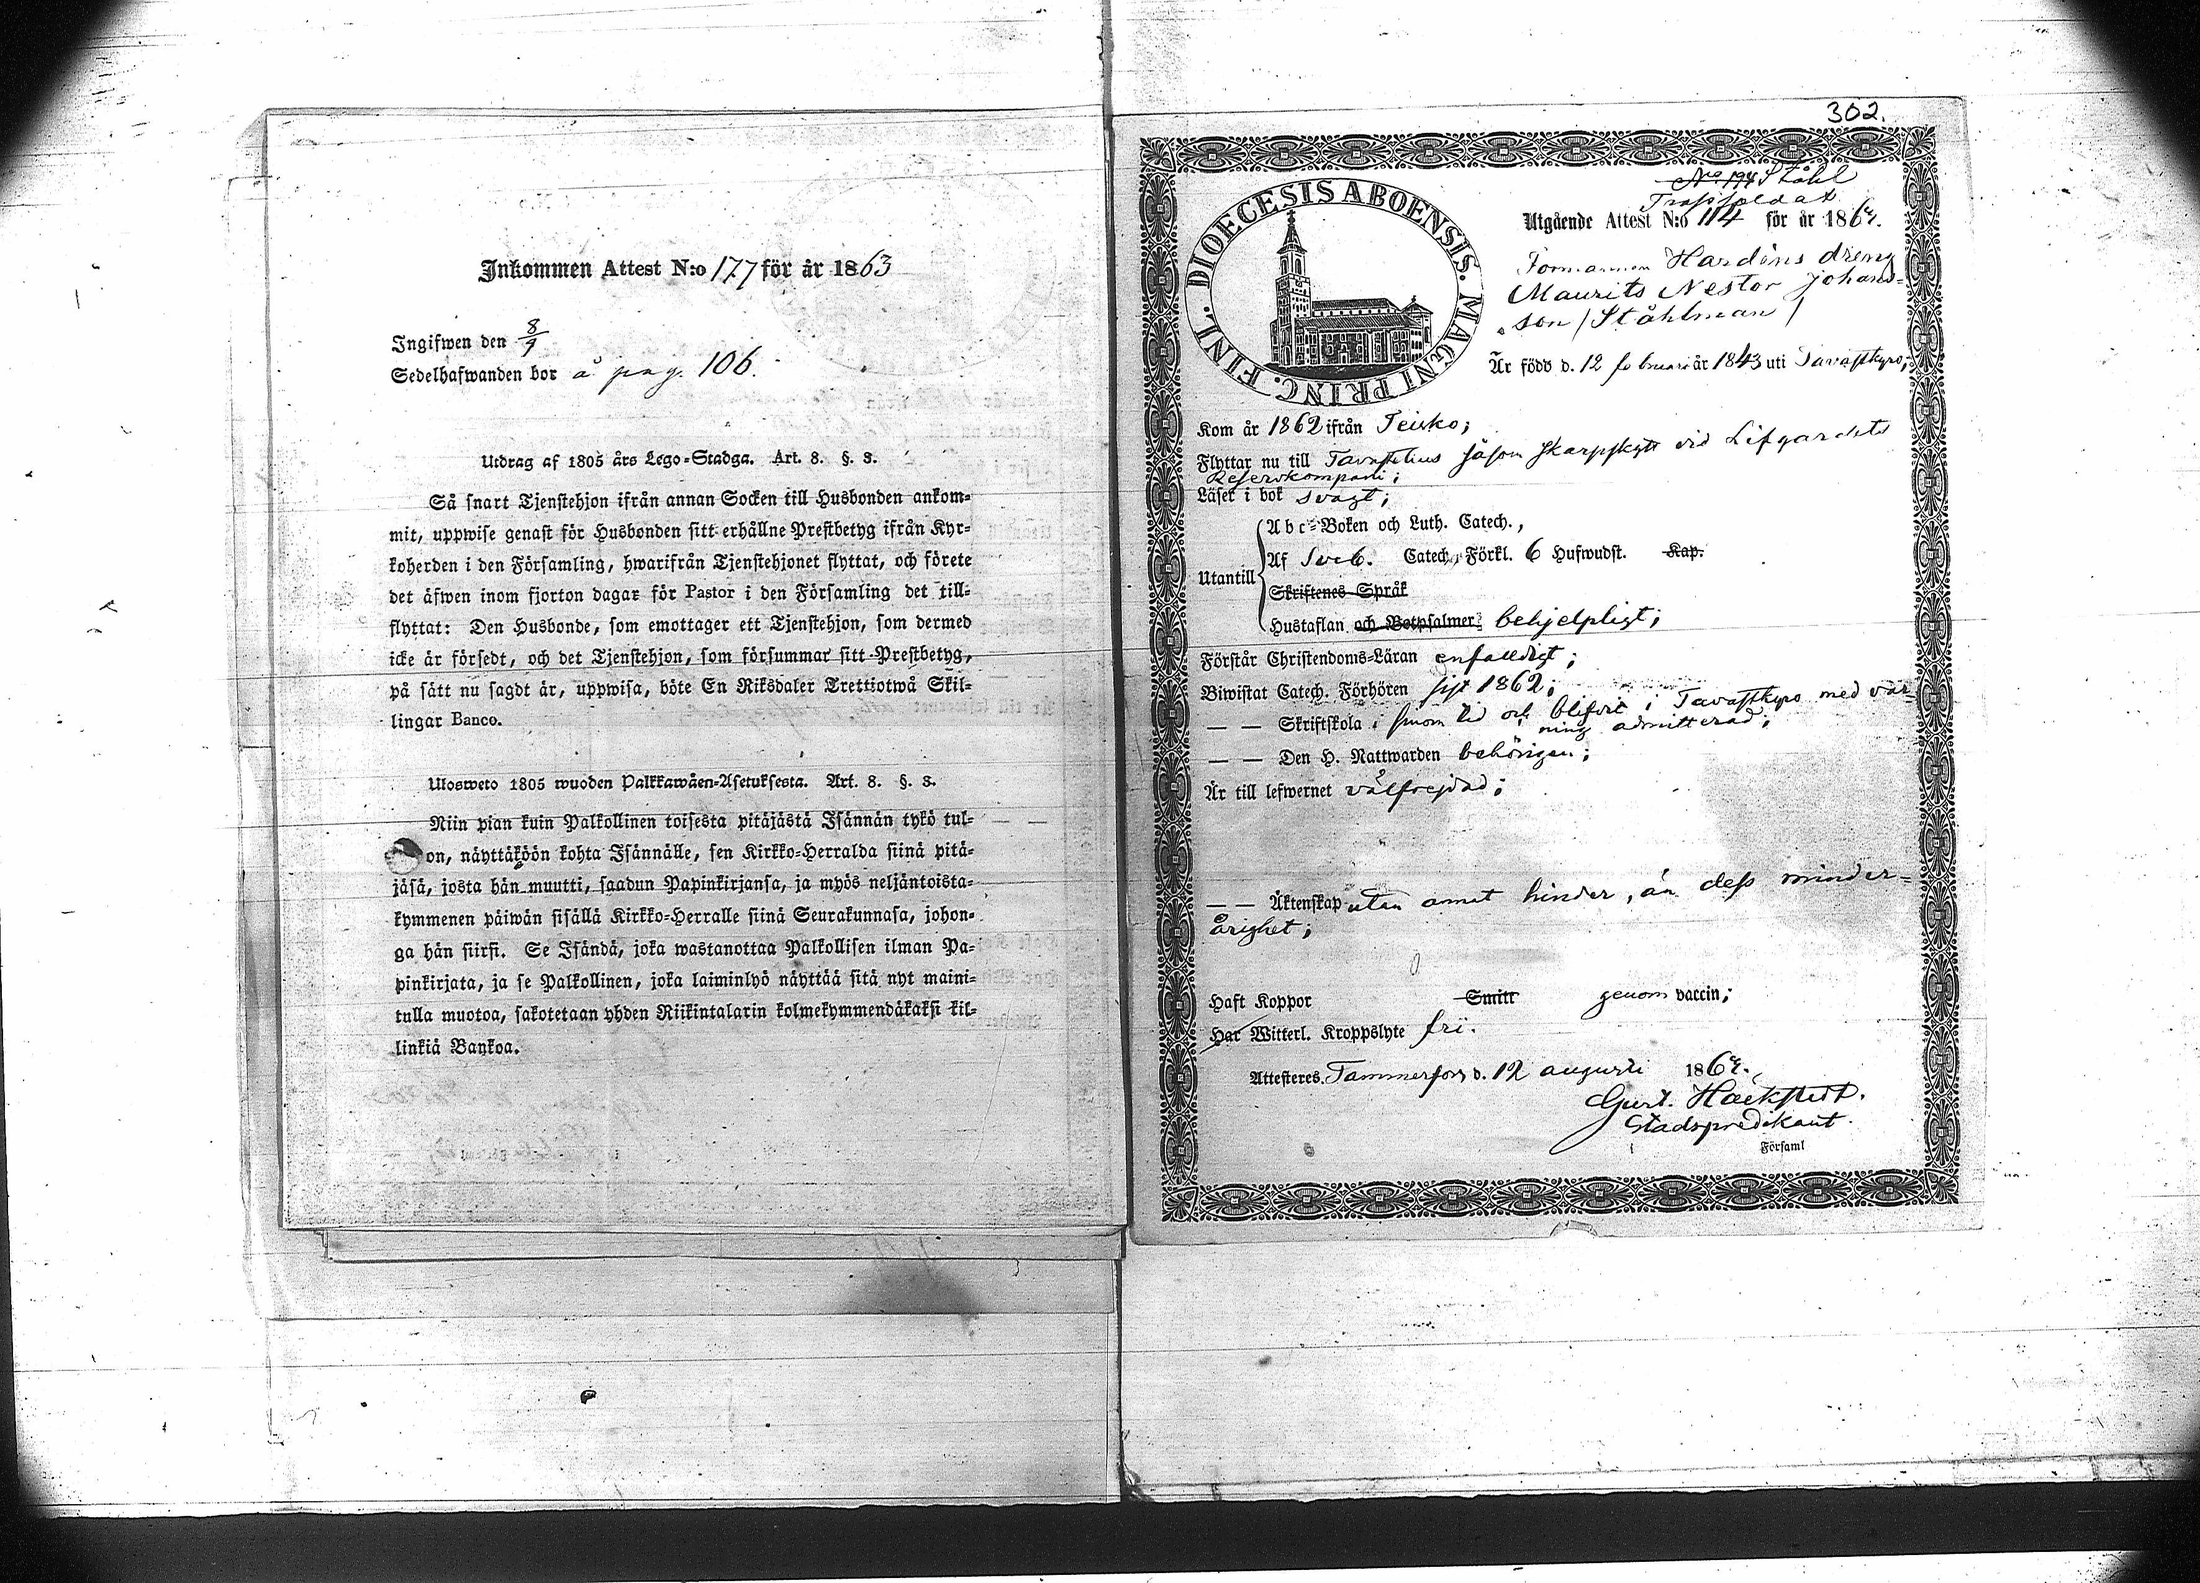 Inkommen Attest N:o 177 för år 1863
Ingifwen den 8/9
Sedelhafwanden bor å pag. 106.
Utdrag af 1805 års Lego-Stadga. Art. 8. §. 3.
Så snart Tjenstehjon ifrån annan Socken till Husbonden ankom-
mit, uppwise genast för Husbonden sitt erhållne Prestbetyg ifrån Kyr-
koherden i den Församling, hwarifrån Tjenstehjonet flyttat, och förete
det äfwen inom fjorton dagar för Pastor i den Församling det till-
flyttat: Den Husbonde, som emottager ett Tjenstehjon, som dermed
icke är försedt, och det Tjenstehjon, som försummar sitt Prestbetyg,
på sätt nu sagdt är, uppwisa, böte En Riksdaler Trettiotwå Skil-
lingar Banco.
Ulosweto 1805 wuoden Palkkawäen-Asetuksesta. Art. 8. §. 3.
Niin pian kuin Palkollinen toisesta pitäjästä Isännän tykö tul-
on, näyttäköön kohta Isännälle, sen Kirkko-Herralda siinä pitä-
jäsä, josta hän muutti, saadun Papinkirjansa, ja myös neljäntoista-
kymmenen päiwän sisällä Kirkko-Herralle siinä Seurakunnasa, johon-
ga hän siirsi. Se Isändä, joka wastanottaa Palkollisen ilman Pa-
pinkirjata, ja se Palkollinen, joka laiminlyö näyttää sitä nyt maini-
tulla muotoa, sakotetaan yhden Riikintalarin kolmekymmendäkaksi kil-
linkiä Bankoa.
302.
DIOECESIS ABOENSIS. MAGNI PRINC. FINL.
No 194 Ståhl
Utgående Attest N:o 114 för år 186
Formannen Hardens dreng
Maurits Nestor Johans-
son /Ståhlman/
Är född d. 12 februari år 1843 uti Tavastkyro;
Kom år 1862 ifrån Teisko;
Flyttar nu till Tavastehus såsom skarpskytt vid Lifgardets
Reservkompani;
Läser i bok svagt;
Abc-Boken och Luth. Catech.,
Af Sveb. Catech. Förkl. 6 Hufwudst. Kap.
Utantill
Skriftenes Språk
Hustaflan och Botpsalmer: behjelpligt;
Förstår Christendoms-Läran enfaldigt;
Biwistat Catech. Förhören sist 1862;
— — Skriftskola i sinom tid och blifvit i Tavastkyro med var-
ning admitterad;
— — Den H. Nattwarden behörigen;
Är till lefwernet välfrejdad;
— — Äktenskap utan annat hinder, än dess minder-
årighet;
Haft Koppor Smitt genom vaccin;
Har Witterl. Kroppslyte fri.
Attesteres. Tammerfors d. 12 augusti 186
Gust. Häckstedt.
Stadspredikant.
Församl